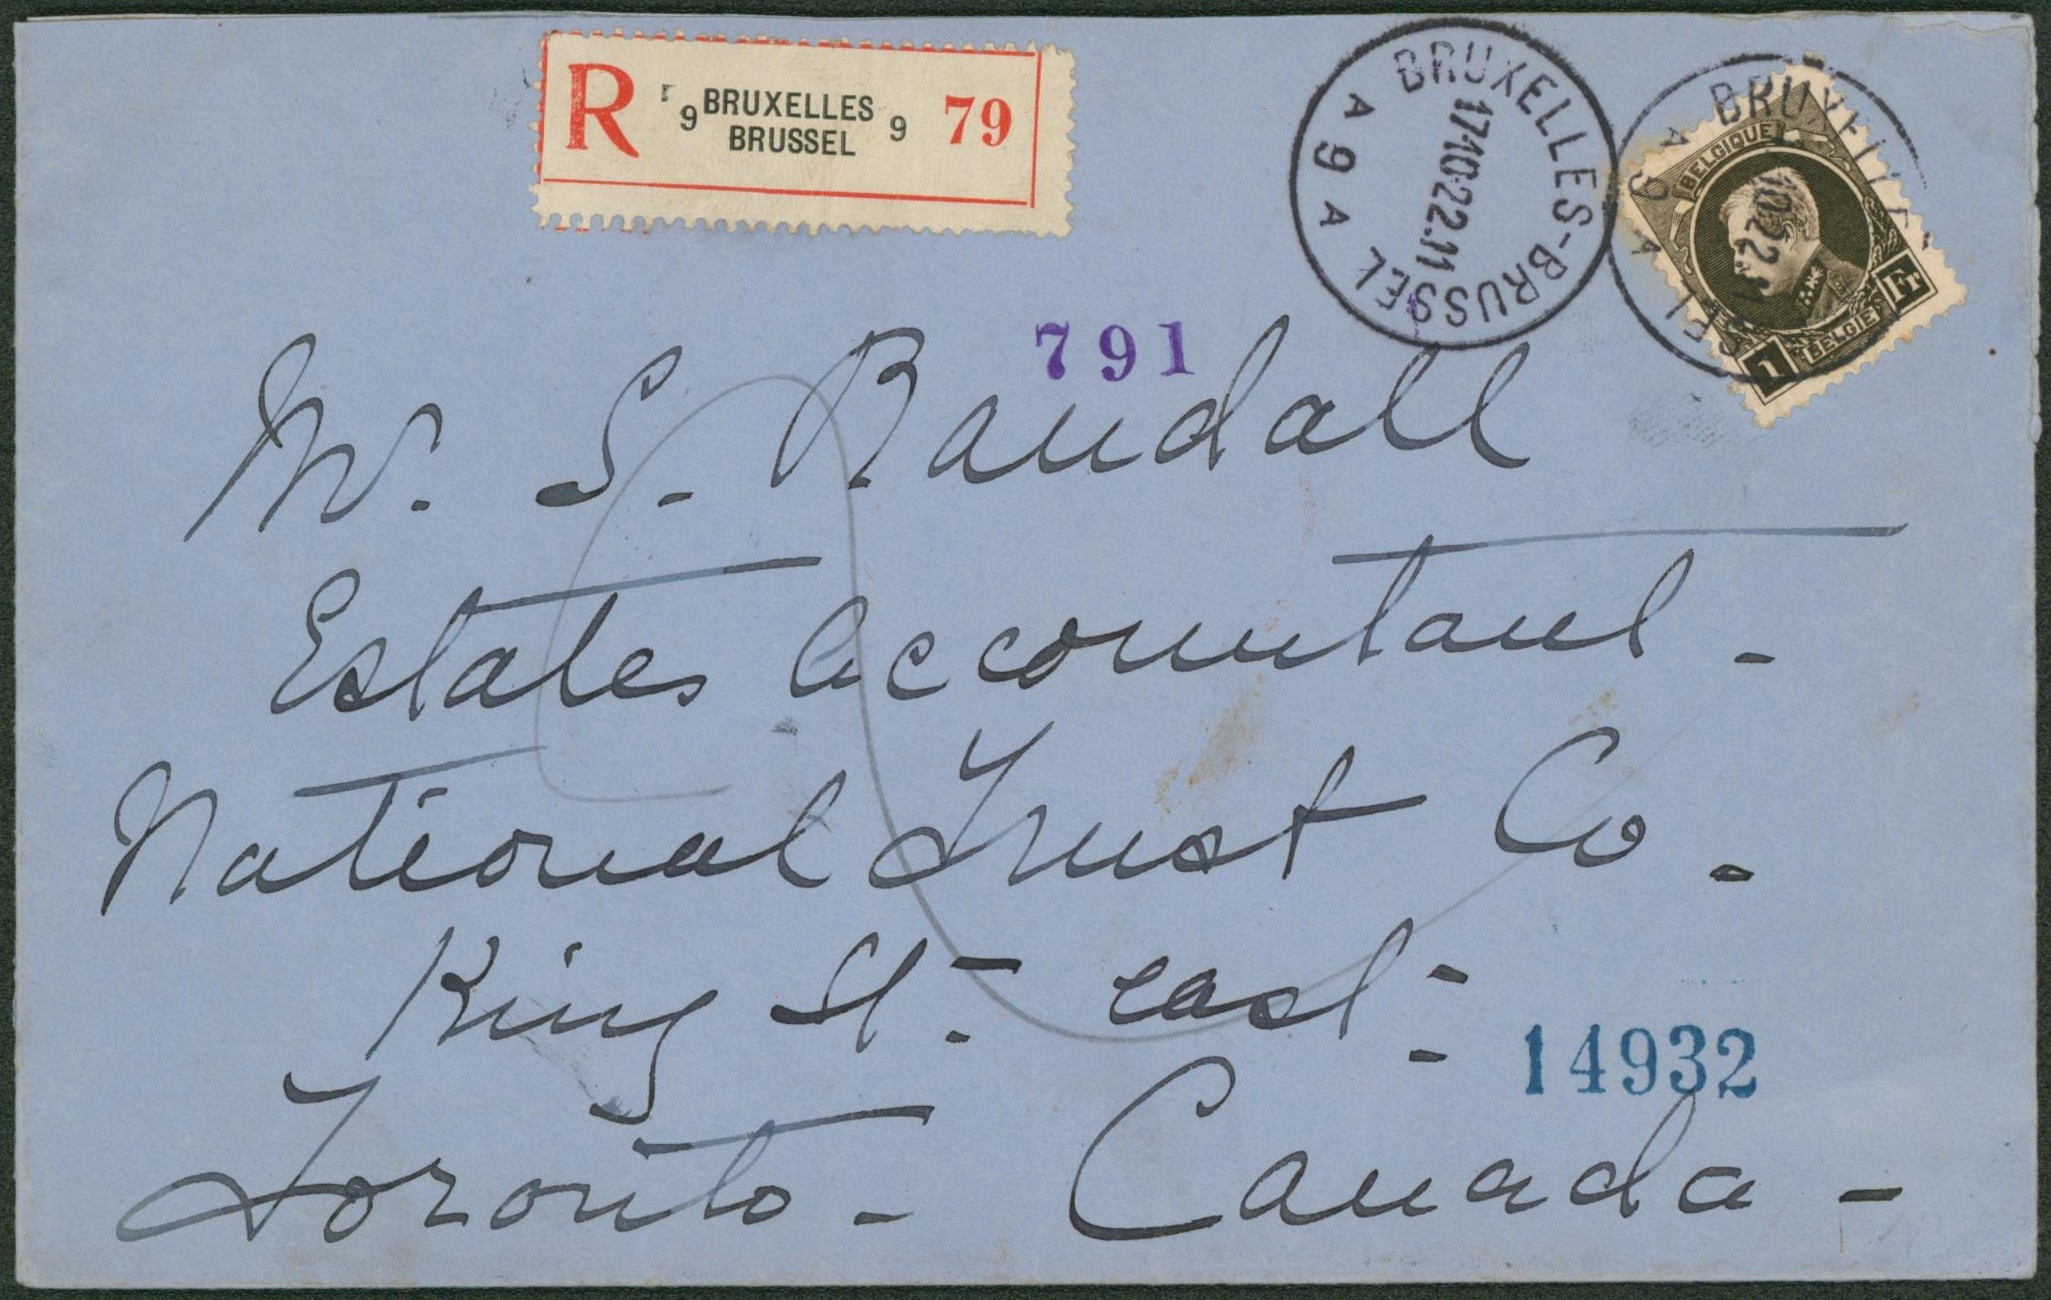 R 9 BRUXELLES BRUSSEL 9 79
BRUXELLES-BRUSSEL
A 9 A
17-10-22.11
BELGIQUE
BELGIE
1 Fr
791
Mr. S. Randall
Estates Accountant -
National Trust Co.
King St. East.
14932
Toronto - Canada -